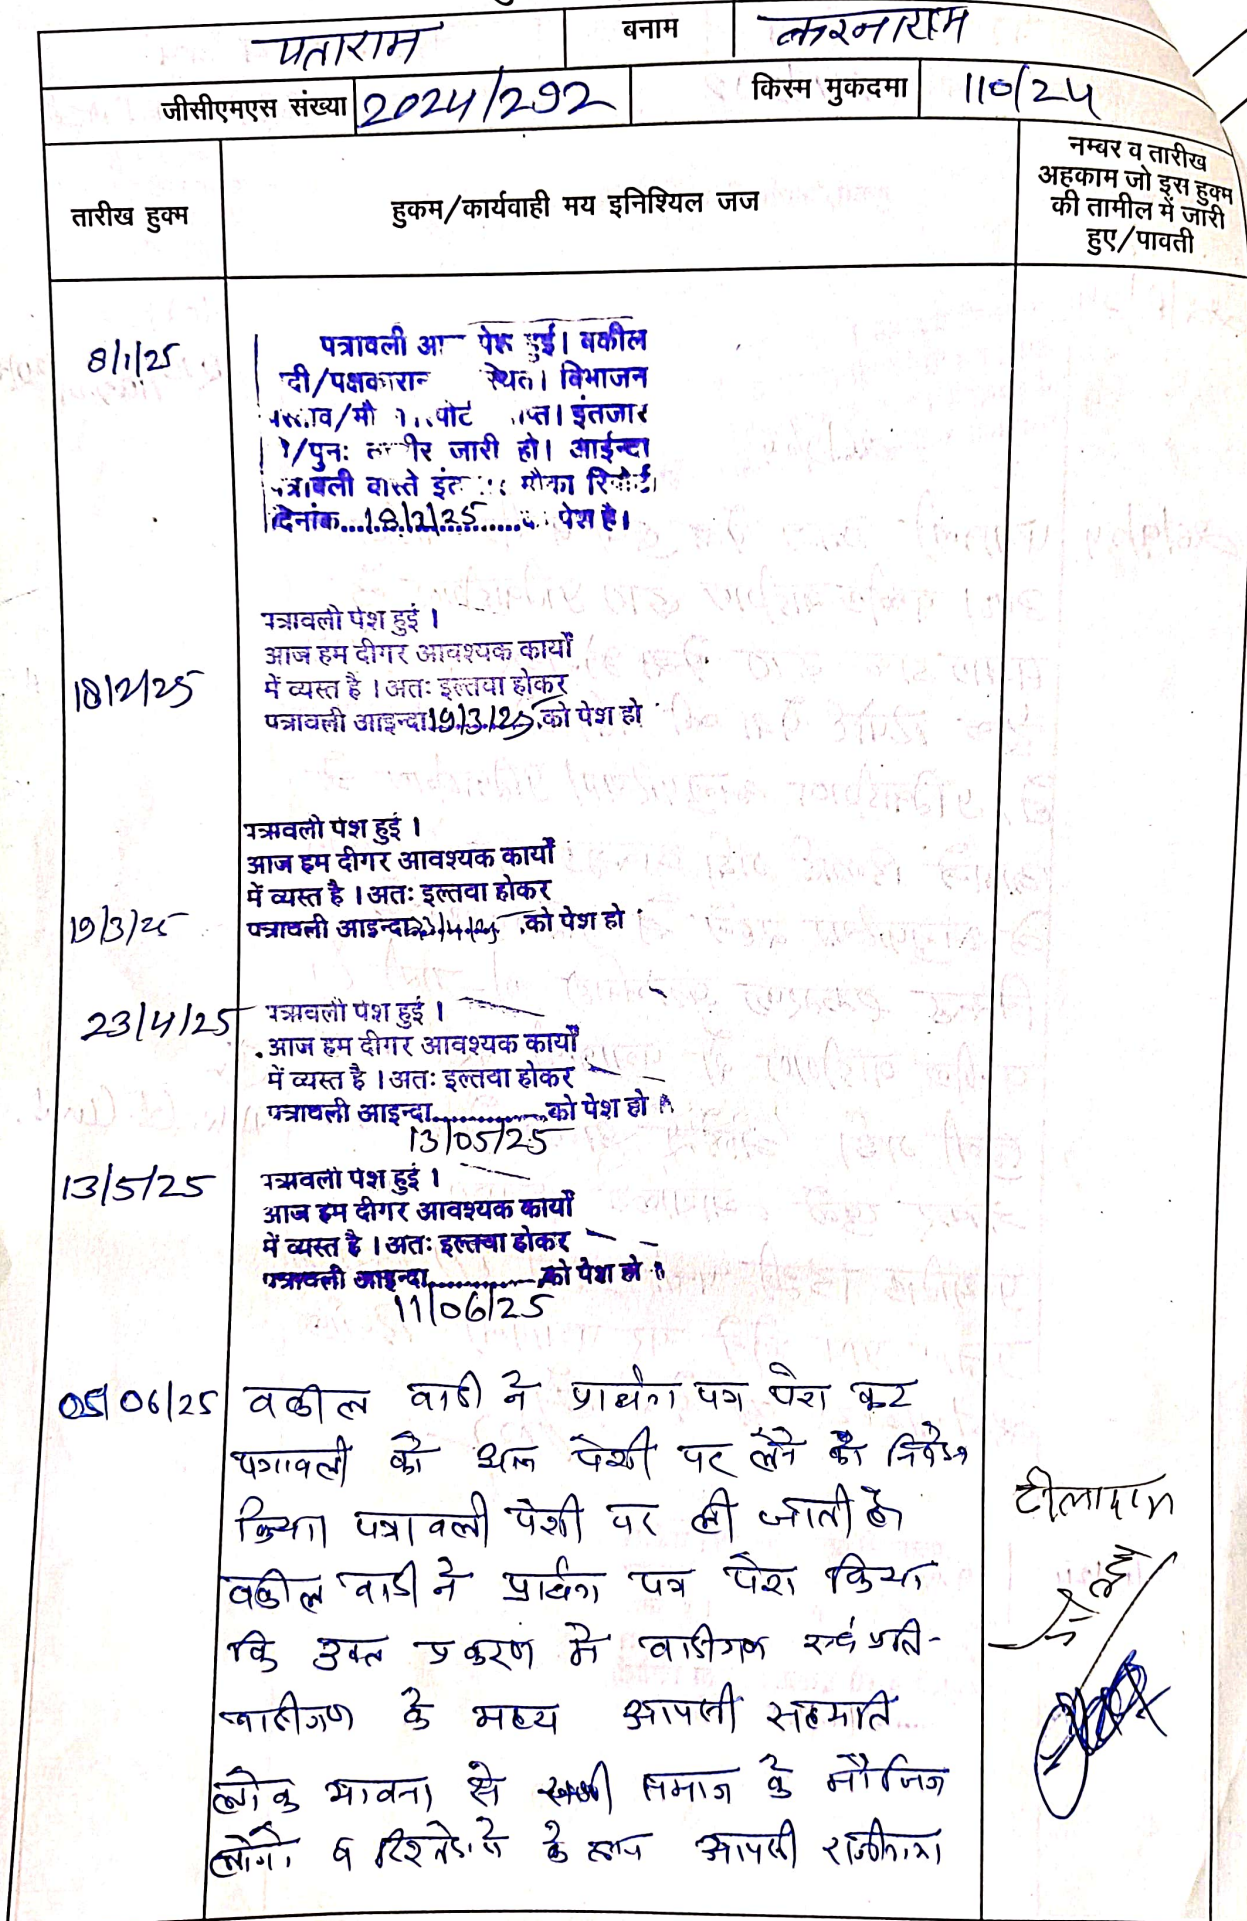 पताराम बनाम करनाराम
जीसीएमएस संख्या 2024/292 किस्म मुकदमा 110/24
तारीख हुक्म
हुकम/कार्यवाही मय इनिश्यिल जज
नम्बर व तारीख
अहकाम जो इस हुक्म
की तामील में जारी
हुए/पावती
8/1/25
पत्रावली पेश हुई। वकील
/पक्षकारान विभाजन
इंतजार
/पुनः जारी हो। आईन्दा
वास्ते मौका रिपोर्ट
दिनांक...18/2/25...... पेश है।
18/2/25
पत्रावली पेश हुई ।
आज हम दीगर आवश्यक कार्यों
में व्यस्त है । अतः इल्तवा होकर
पत्रावली आइन्दा 19/3/25 को पेश हो
19/3/25
पत्रावली पेश हुई ।
आज हम दीगर आवश्यक कार्यों
में व्यस्त है । अतः इल्तवा होकर
पत्रावली आइन्दा 23/4/25 को पेश हो
23/4/25
पत्रावली पेश हुई ।
आज हम दीगर आवश्यक कार्यों
में व्यस्त है । अतः इल्तवा होकर
पत्रावली आइन्दा..............को पेश हो
13/05/25
13/5/25
पत्रावली पेश हुई ।
आज हम दीगर आवश्यक कार्यों
में व्यस्त है । अतः इल्तवा होकर
पत्रावली आइन्दा..............को पेश हो
11/06/25
05/06/25 वकील वादी ने प्रार्थना पत्र पेश कर
पत्रावली को पेशी पर लेने का निवेदन
किया। पत्रावली पेशी पर ली जाती है
वकील वादी ने प्रार्थना पत्र पेश किया
कि उक्त प्रकरण में वादीगण एवं प्रति-
वादीगण के मध्य आपसी सहमति
लोक भावना से समाज के मौजिज
लोगों व रिश्तेदारों के साथ आपसी राजीनामा